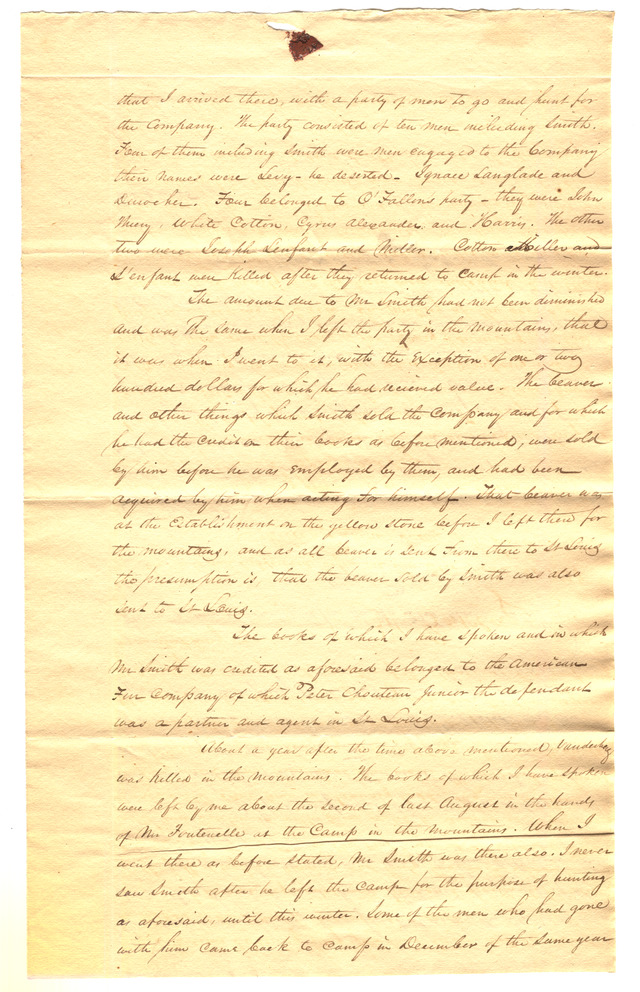 that I arrived there, with a party of men to go and hunt for
the Company. The party consisted of ten men including Smith.
Four of them including Smith were men engaged to the Company
their names were Levy - he deserted - Ignace Langlade and
Durocher. Four belonged to O'Fallons party - they were John
White Cotton, Cyrus Alexander and Harris. The other
two were Joseph Lenfant and Miller. Cotton Miller and
L'enfant were killed after they returned to camp in the winter.
The amount due to Mr Smith had not been diminished
and was the same when I left the party in the mountains, that
it was when I went to it, with the exception of one or two
hundred dollars for which he had recieved value. The beaver
and other things which Smith sold the Company and for which
he had the credit on their books as before mentioned, were sold
by him before he was employed by them, and had been
acquired by him when acting for himself. That beaver was
at the Establishment on the yellow stone before I left there for
the mountains, and as all beaver is sent from there to St Louis
the presumption is, that the beaver sold by Smith was also
sent to St Louis.
The books of which I have spoken and in which
Mr Smith was credited as aforesaid belonged to the American
Fur Company of which Peter Chouteau Junior the defendant
was a partner and agent in St Louis.
About a year after the time above mentioned, Vanderburg
was killed in the mountains. The books of which I have spoken
were left by me about the second of last August in the hands
of Mr Fontenelle at the Camp in the mountains. When I
went there as before stated, Mr Smith was there also. I never
saw Smith after he left the camp for the purpose of hunting
as aforesaid, until this winter. Some of the men who had gone
with him came back to camp in December of the same year